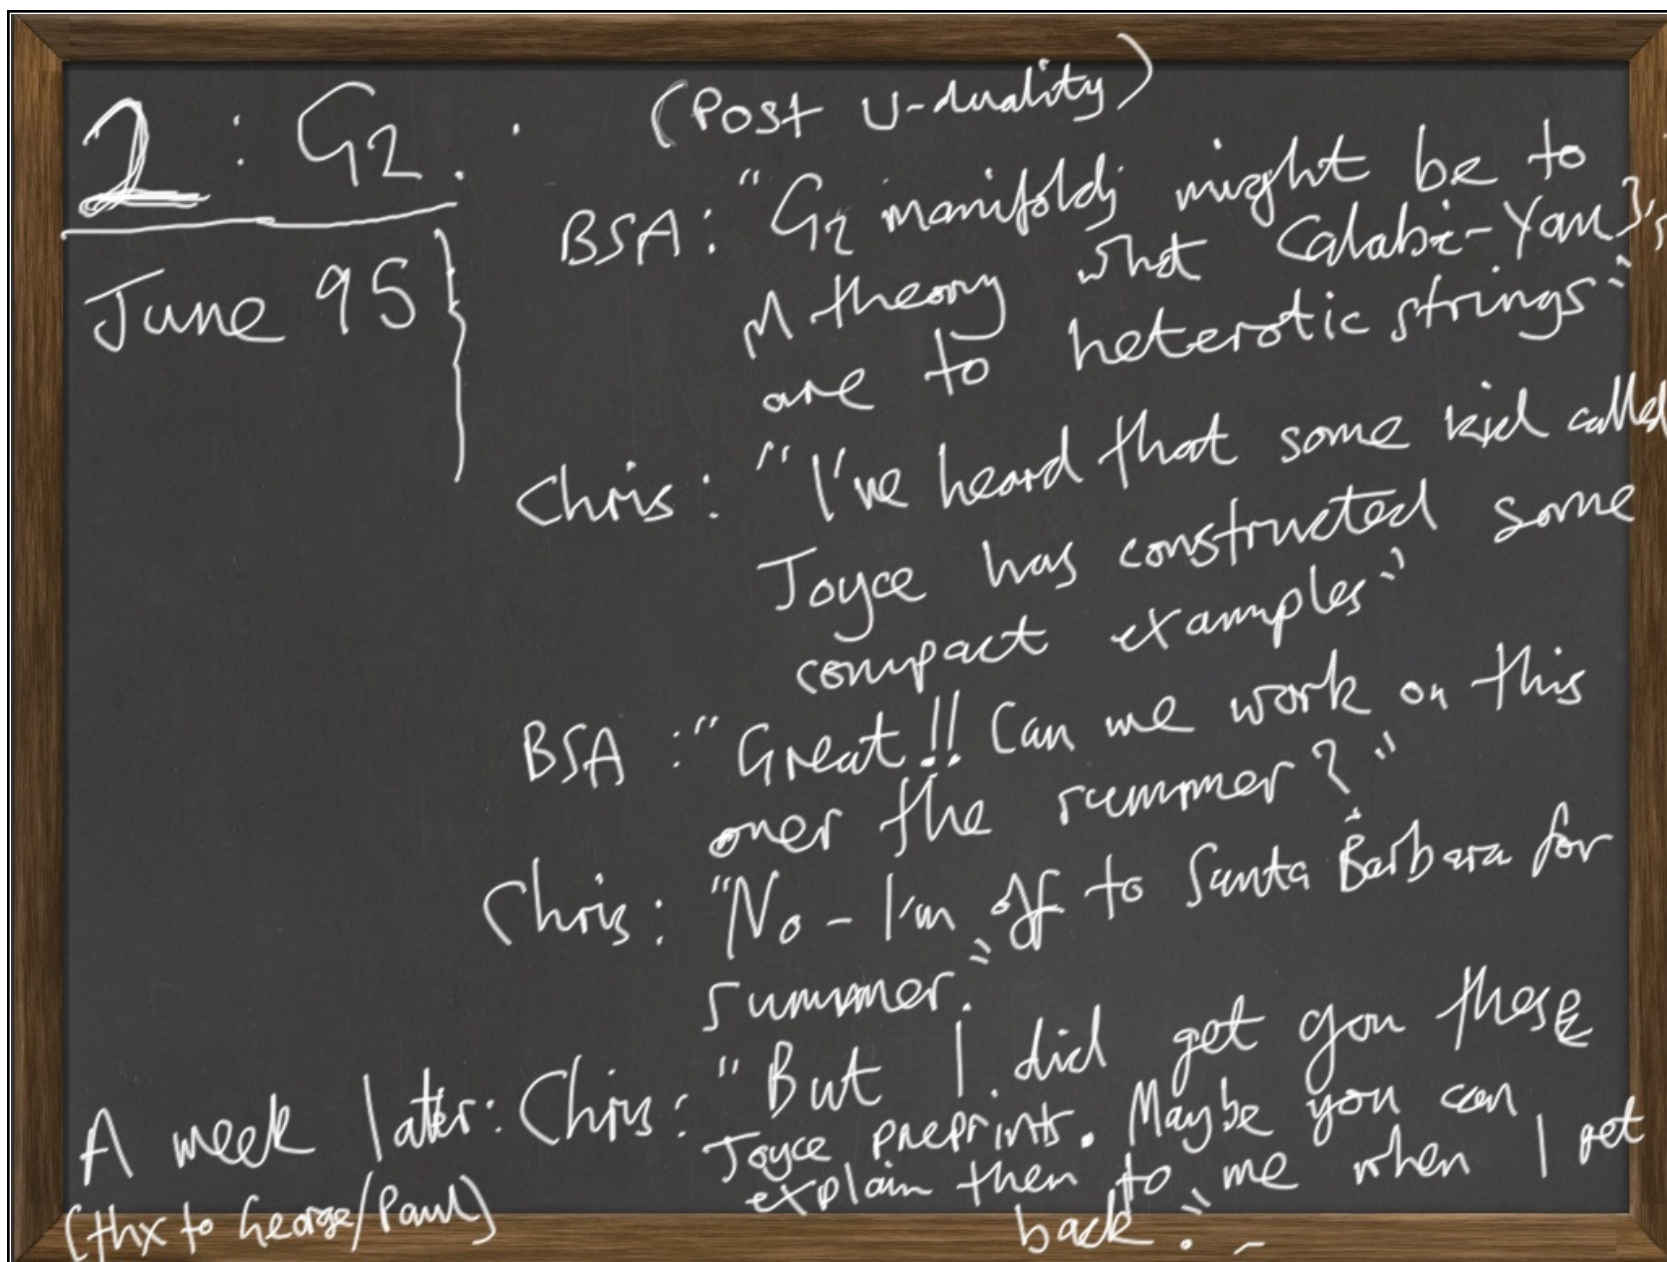 2 : G2. . (Post U-duality)
June 95
BSA : "G2 manifolds might be to
M theory what Calabi-Yau 3's
are to heterotic strings"
Chris : "I've heard that some kid called
Joyce has constructed some
compact examples"
BSA : "Great!! Can we work on this
over the summer?"
Chris : "No - I'm off to Santa Barbara for
summer."
A week later: Chris: "But I did get you these
Joyce preprints. Maybe you can
explain them to me when I get
back."
(thx to George/Paul)